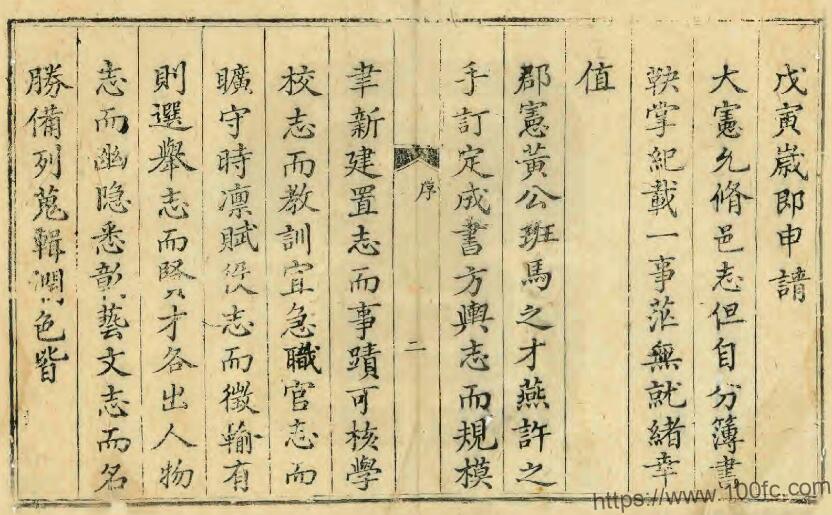 戊寅歲即申請
大憲允脩邑志但自分簿書
鞅掌紀載一事茫無就緒幸
值
郡憲黃公班馬之才燕許之
手訂定成書方輿志而規模
序
二
聿新建置志而事蹟可核學
校志而教訓宜急職官志而
曠守時凛賦役志而徵輸有
則選舉志而賢才各出人物
志而幽隐悉彰藝文志而名
勝備列蒐輯潤色皆
https://www.100fc.com